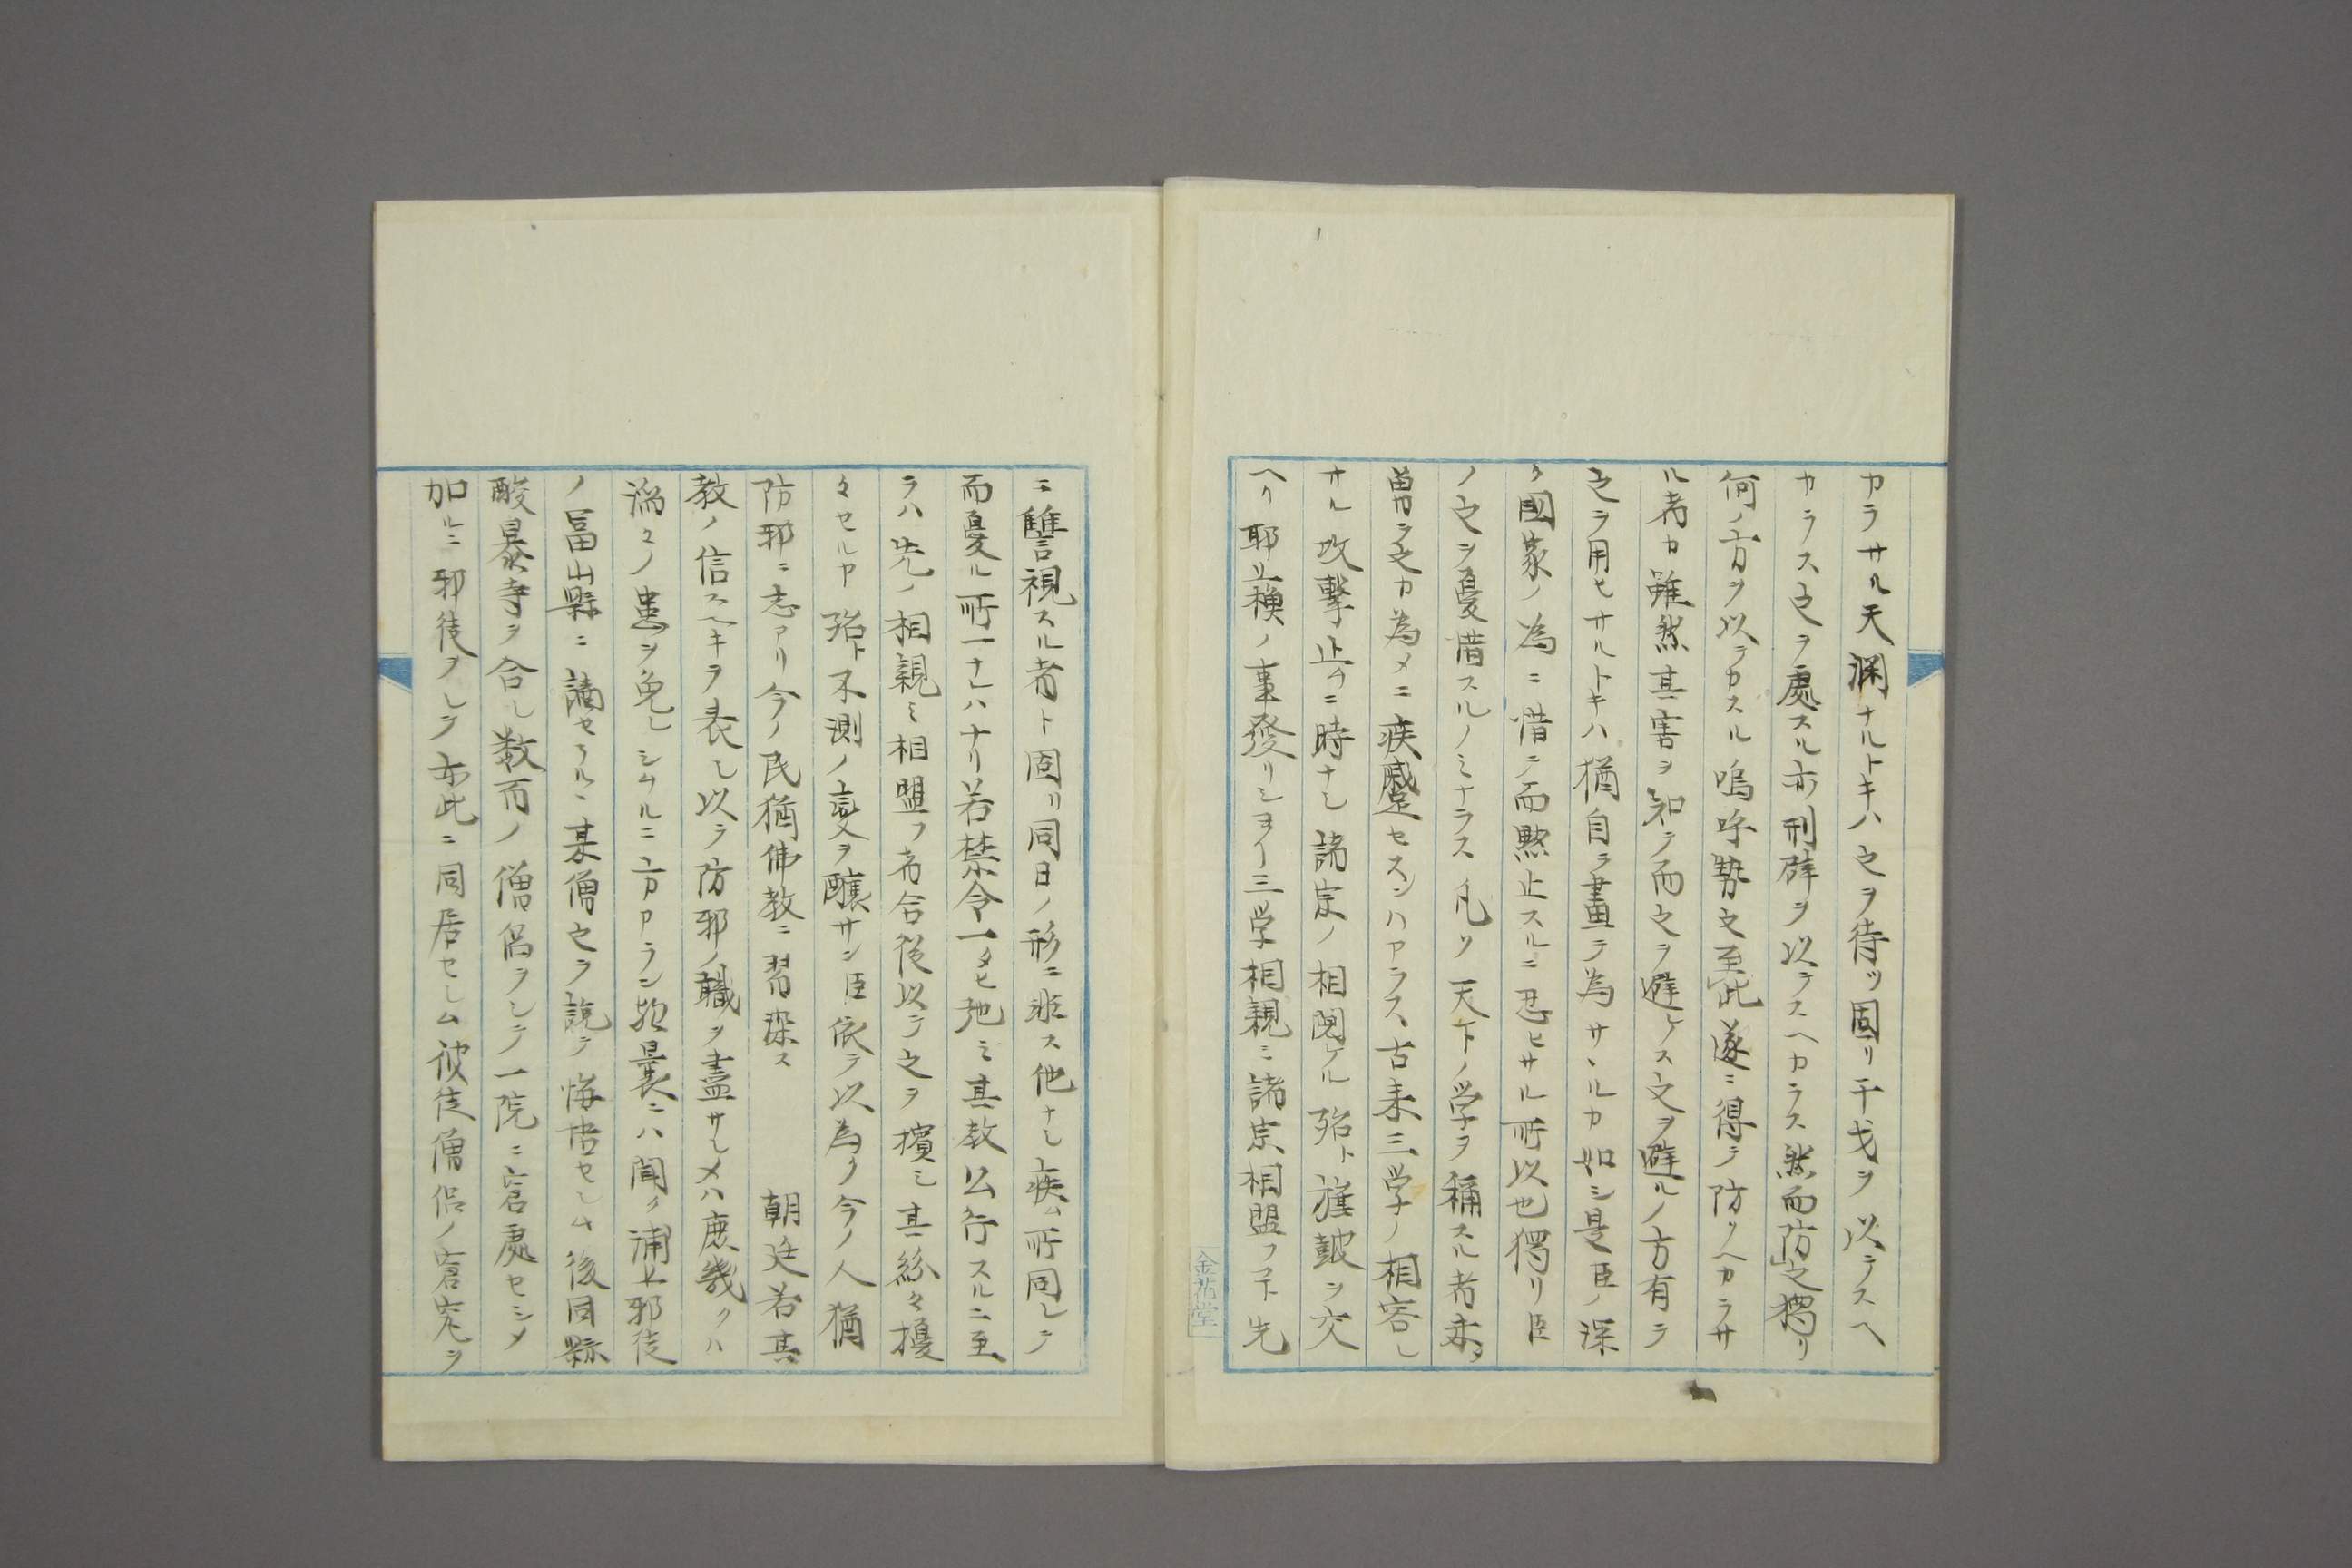 カラサル天淵ナルトキハ之ヲ待ツ固リ干戈ヲ以テスヘ
カラス之ヲ處スル亦刑辟ヲ以テスヘカラス然而防之獨リ
何ノ方ヲ以テカスル嗚呼勢之至此遂ニ得テ防クヘカラサ
ル者カ雖然其害ヲ知テ而之ヲ避ケス之ヲ避ルノ方有テ
之ヲ用ヒサルトキハ猶自ラ畫テ為サヽルカ如シ是臣ノ深
ク國家ノ為ニ惜テ而黙止スルニ忍ヒサル所以也獨リ臣
ノ之ヲ憂惜スルノミナラス凡ソ天下ノ学ヲ稱スル者未タ
曽テ之カ為メニ疾蹙セスンハアラス古来三学ノ相容レ
サル攻撃止ムニ時ナシ諸宗ノ相鬩ケル殆ト旗鼓ヲ交
ヘリ耶蘓ノ事發リショリ三学相親ミ諸宗相盟フヿ先
ニ讐視スル者ト固リ同日ノ形ニ非ス他ナシ疾ム所同シテ
而憂ル所一ナレハナリ若禁令一タヒ弛ミ其教公行スルニ至
ラハ先ノ相親ミ相盟フ者合従以テ之ヲ擯シ其紛々擾
々セルヤ殆ト不測ノ變ヲ醸サン臣依テ以為ク今ノ人猶
防邪ニ志アリ今ノ民猶佛教ニ習深ス 朝廷若其
教ノ信スヘキヲ表シ以テ防邪ノ職ヲ盡サシメハ庶幾クハ
滔々ノ患ヲ免レシムルニ方アラン 曩ニハ聞ク浦上邪徒
ノ冨山縣ニ謫セラルヽ某僧之ヲ説テ悔悟セシム後同縣
酸暴寺ヲ合シ数百ノ僧侶ヲシテ一院ニ窘處セシメ
加ルニ邪徒ヲシテ亦此ニ同居セシム彼徒僧侶ノ窘宛ヲ
金花堂